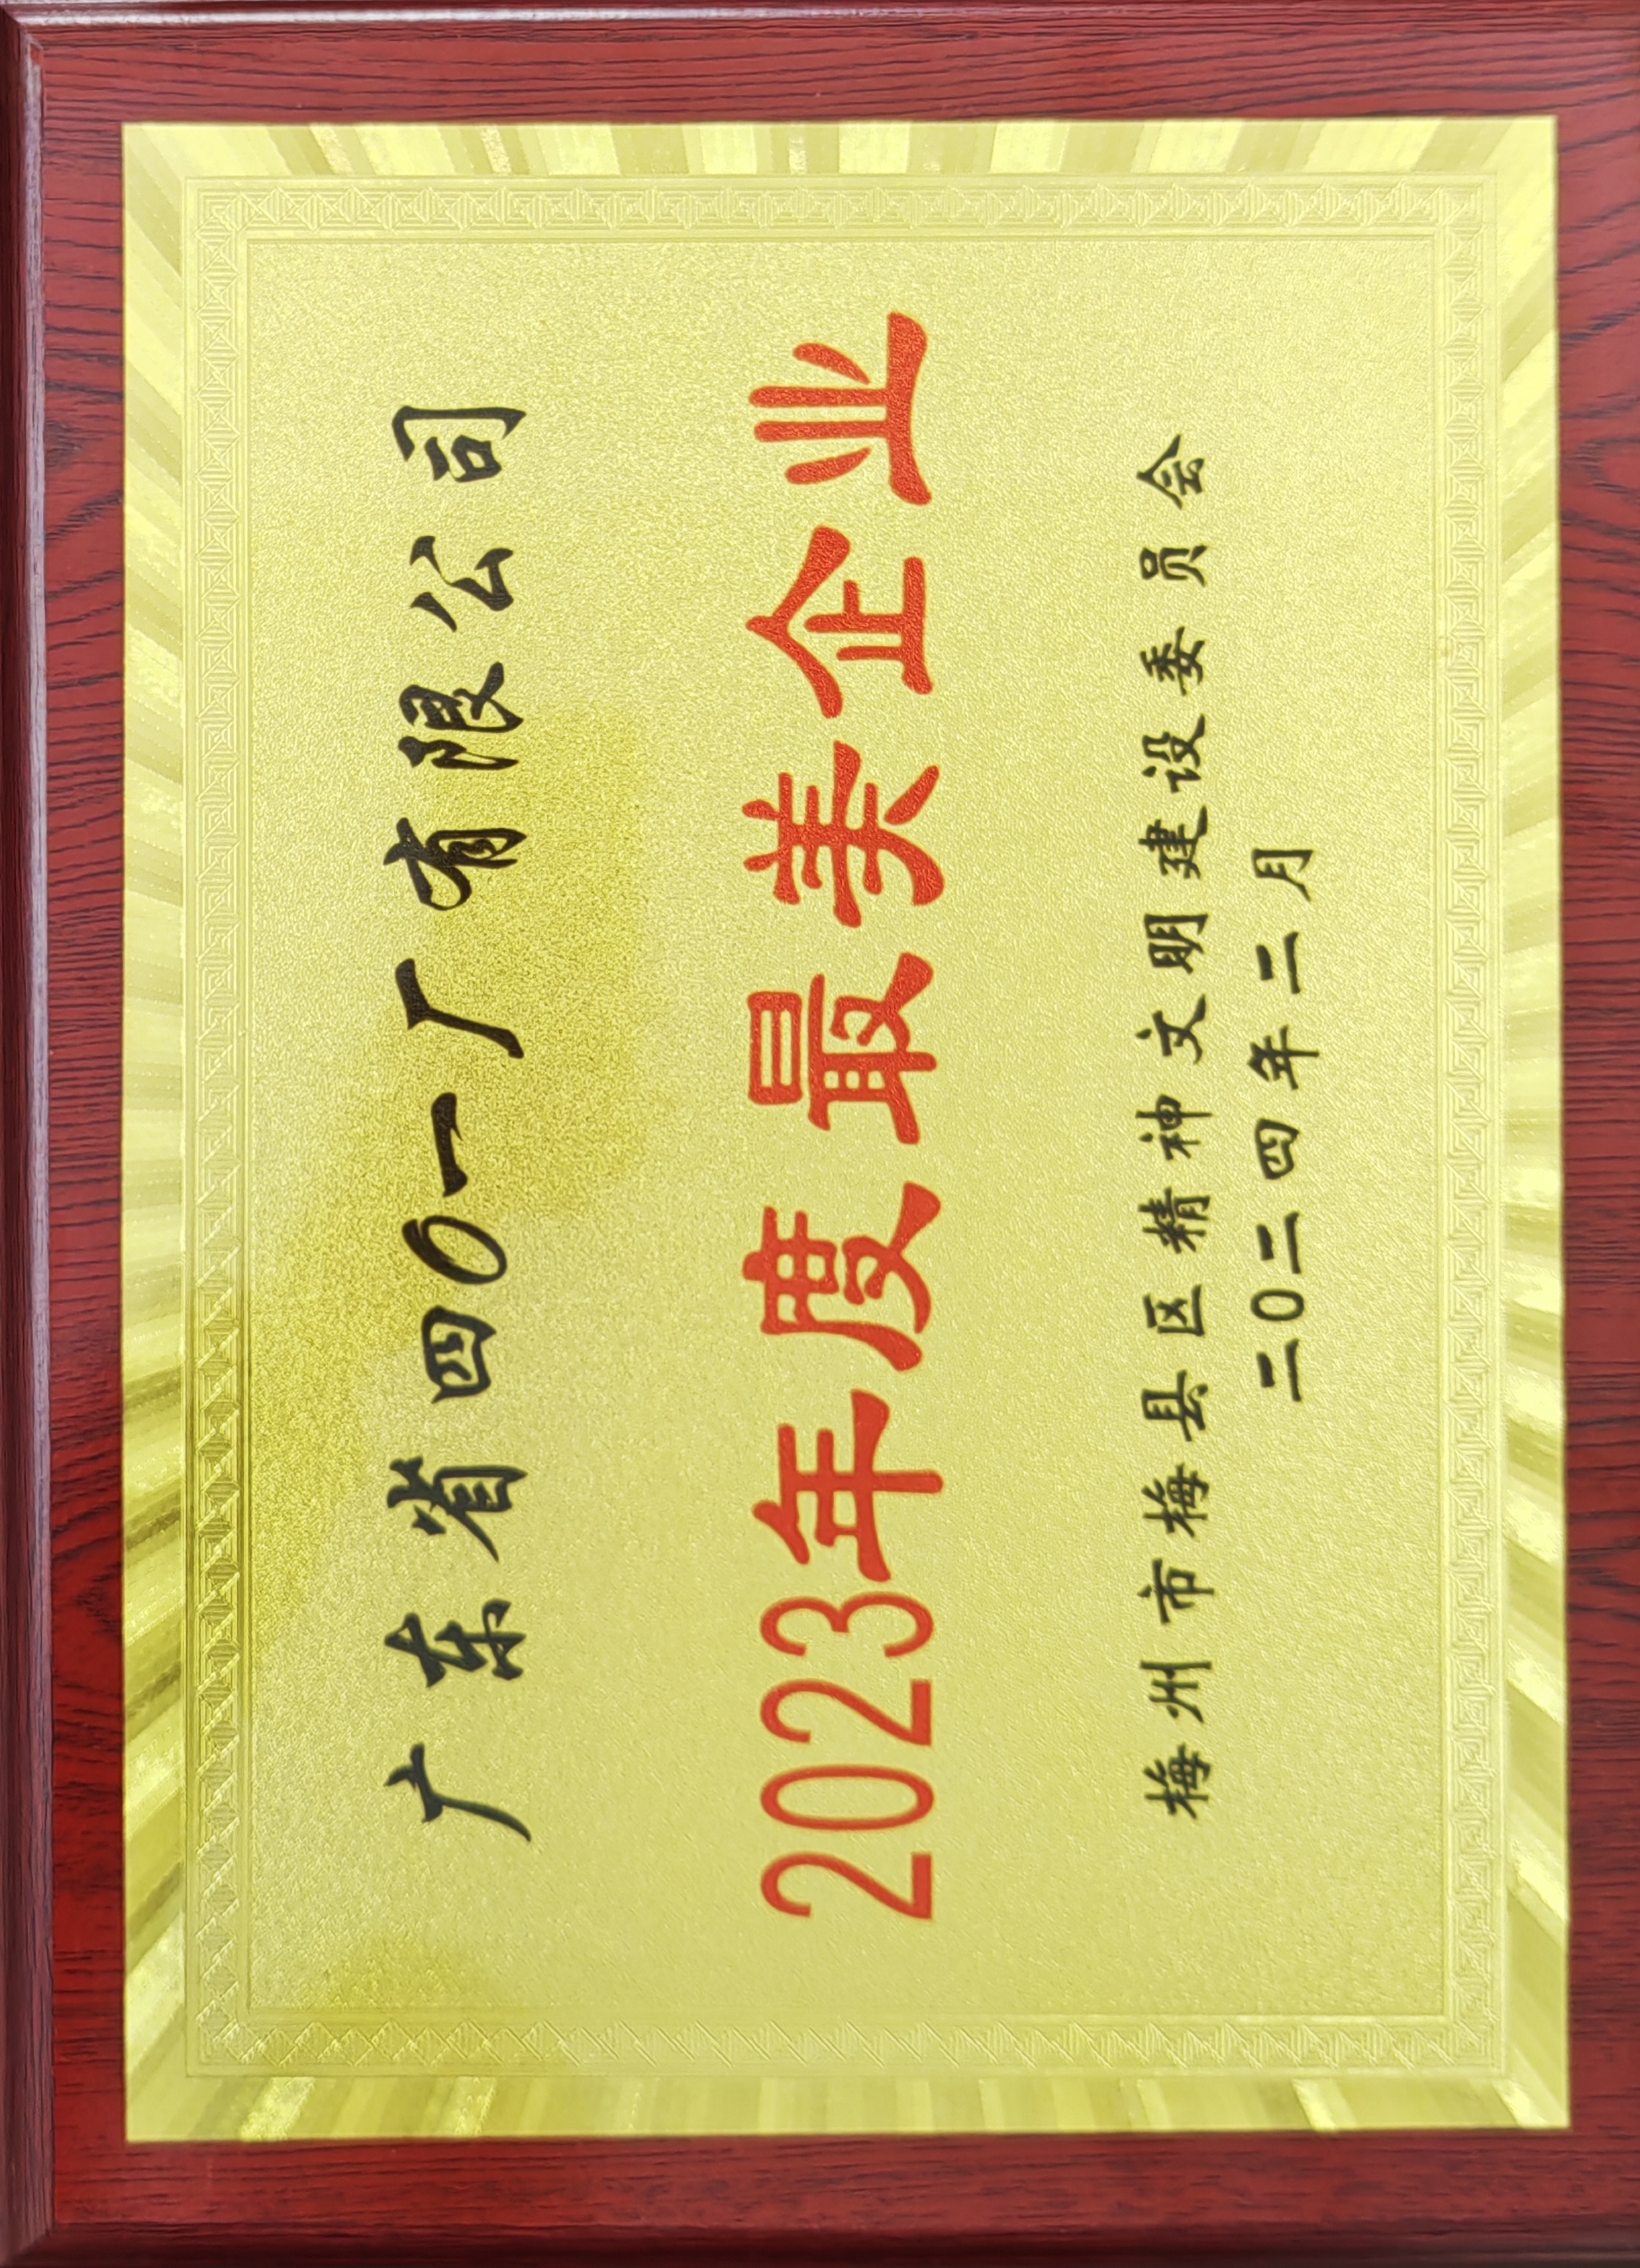 广东省四0一厂有限公司
2023年度最美企业
梅州市梅县区精神文明建设委员会
二0二四年二月